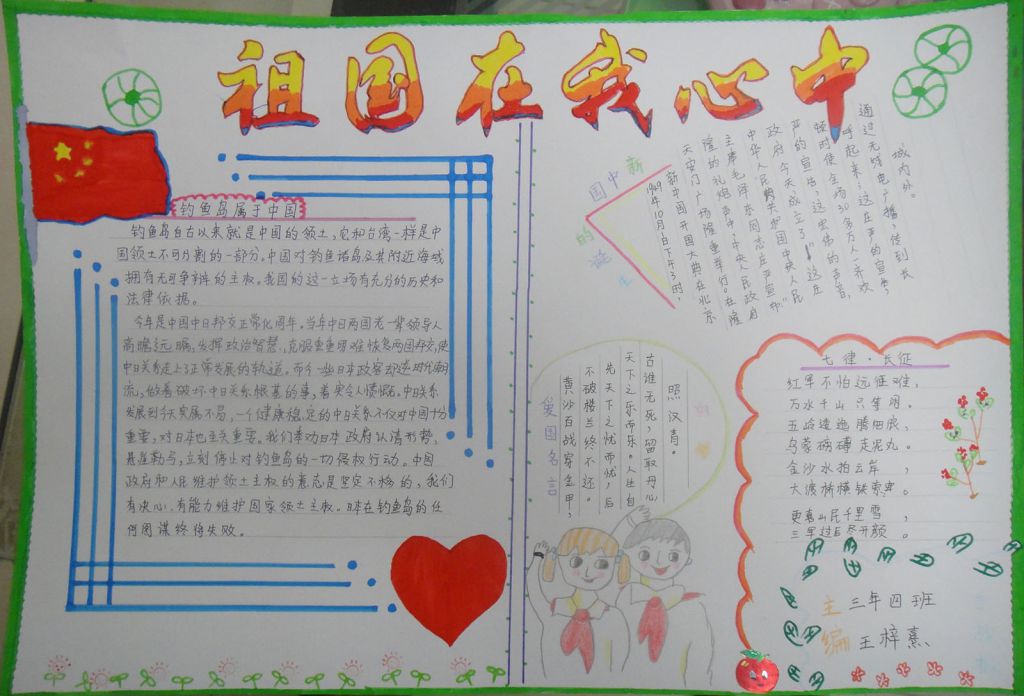 祖国在我心中
钓鱼岛属于中国
钓鱼岛自古以来就是中国的领土，它和台湾一样是中
国领土不可分割的一部分。中国对钓鱼诸岛及其附近海域
拥有无可争辩的主权。我国的这一立场有充分的历史和
法律依据。
今年是中国中日邦交正常化周年。当年中日两国老一辈领导人
高瞻远瞩，发挥政治智慧，克服重重困难恢复两国邦交，使
中日关系走上了正常发展的轨道。而今一些日本政客却逆时代潮
流，做着破坏中日关系根基的事，着实令人愤慨。中日关系
发展到今天实属不易，一个健康稳定的中日关系不仅对中国十分
重要，对日本也至关重要。我们奉劝日本政府认清形势，
悬崖勒马，立刻停止对钓鱼岛的一切侵权行动。中国
政府和人民维护领土主权的意志是坚定不移的，我们
有决心、有能力维护国家领土主权。日本在钓鱼岛的任
何图谋终将失败。
新中国的诞生
1949年10月1日下午3时，
新中国开国大典在北京
天安门广场隆重举行。在隆
隆的礼炮声中，中央人民政府
主席毛泽东同志庄严宣布“
中华人民共和国中央人民
政府今天成立了”这庄
严的宣告，这宏伟的声音，
顿时使全场30多万人一齐欢
呼起来；这庄严的宣告，
通过无线电广播，传到长
城内外。
爱国名言
黄沙百战穿金甲，
不破楼兰终不还。
先天下之忧而忧，后
天下之乐而乐。人生自
古谁无死，留取丹心
照汉青。
七律·长征
红军不怕远征难，
万水千山只等闲。
五岭逶迤腾细浪，
乌蒙磅礴走泥丸。
金沙水拍云岸，
大渡桥横铁索寒。
更喜山民千里雪，
三军过后尽开颜。
主 三年四班
编 王梓熹